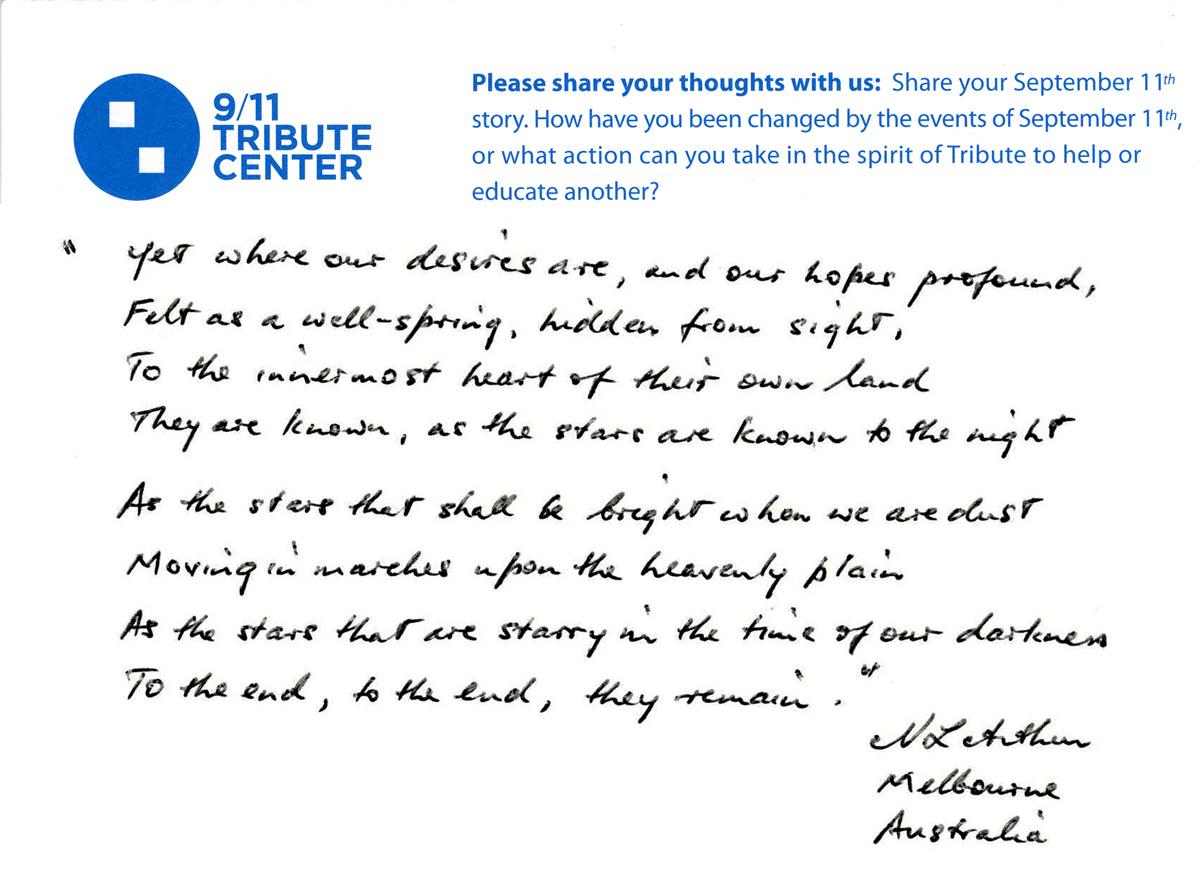 9/11
TRIBUTE
CENTER
Please share your thoughts with us: Share your September 11th
story. How have you been changed by the events of September 11th,
or what action can you take in the spirit of Tribute to help or
educate another?
" Yet where our desires are, and our hopes profound,
Felt as a well-spring, hidden from sight,
To the innermost heart of their own land
They are known, as the stars are known to the night
As the stars that shall be bright when we are dust
Moving in marches upon the heavenly plain
As the stars that are starry in the time of our darkness
To the end, to the end, they remain."
N L Arthur
Melbourne
Australia